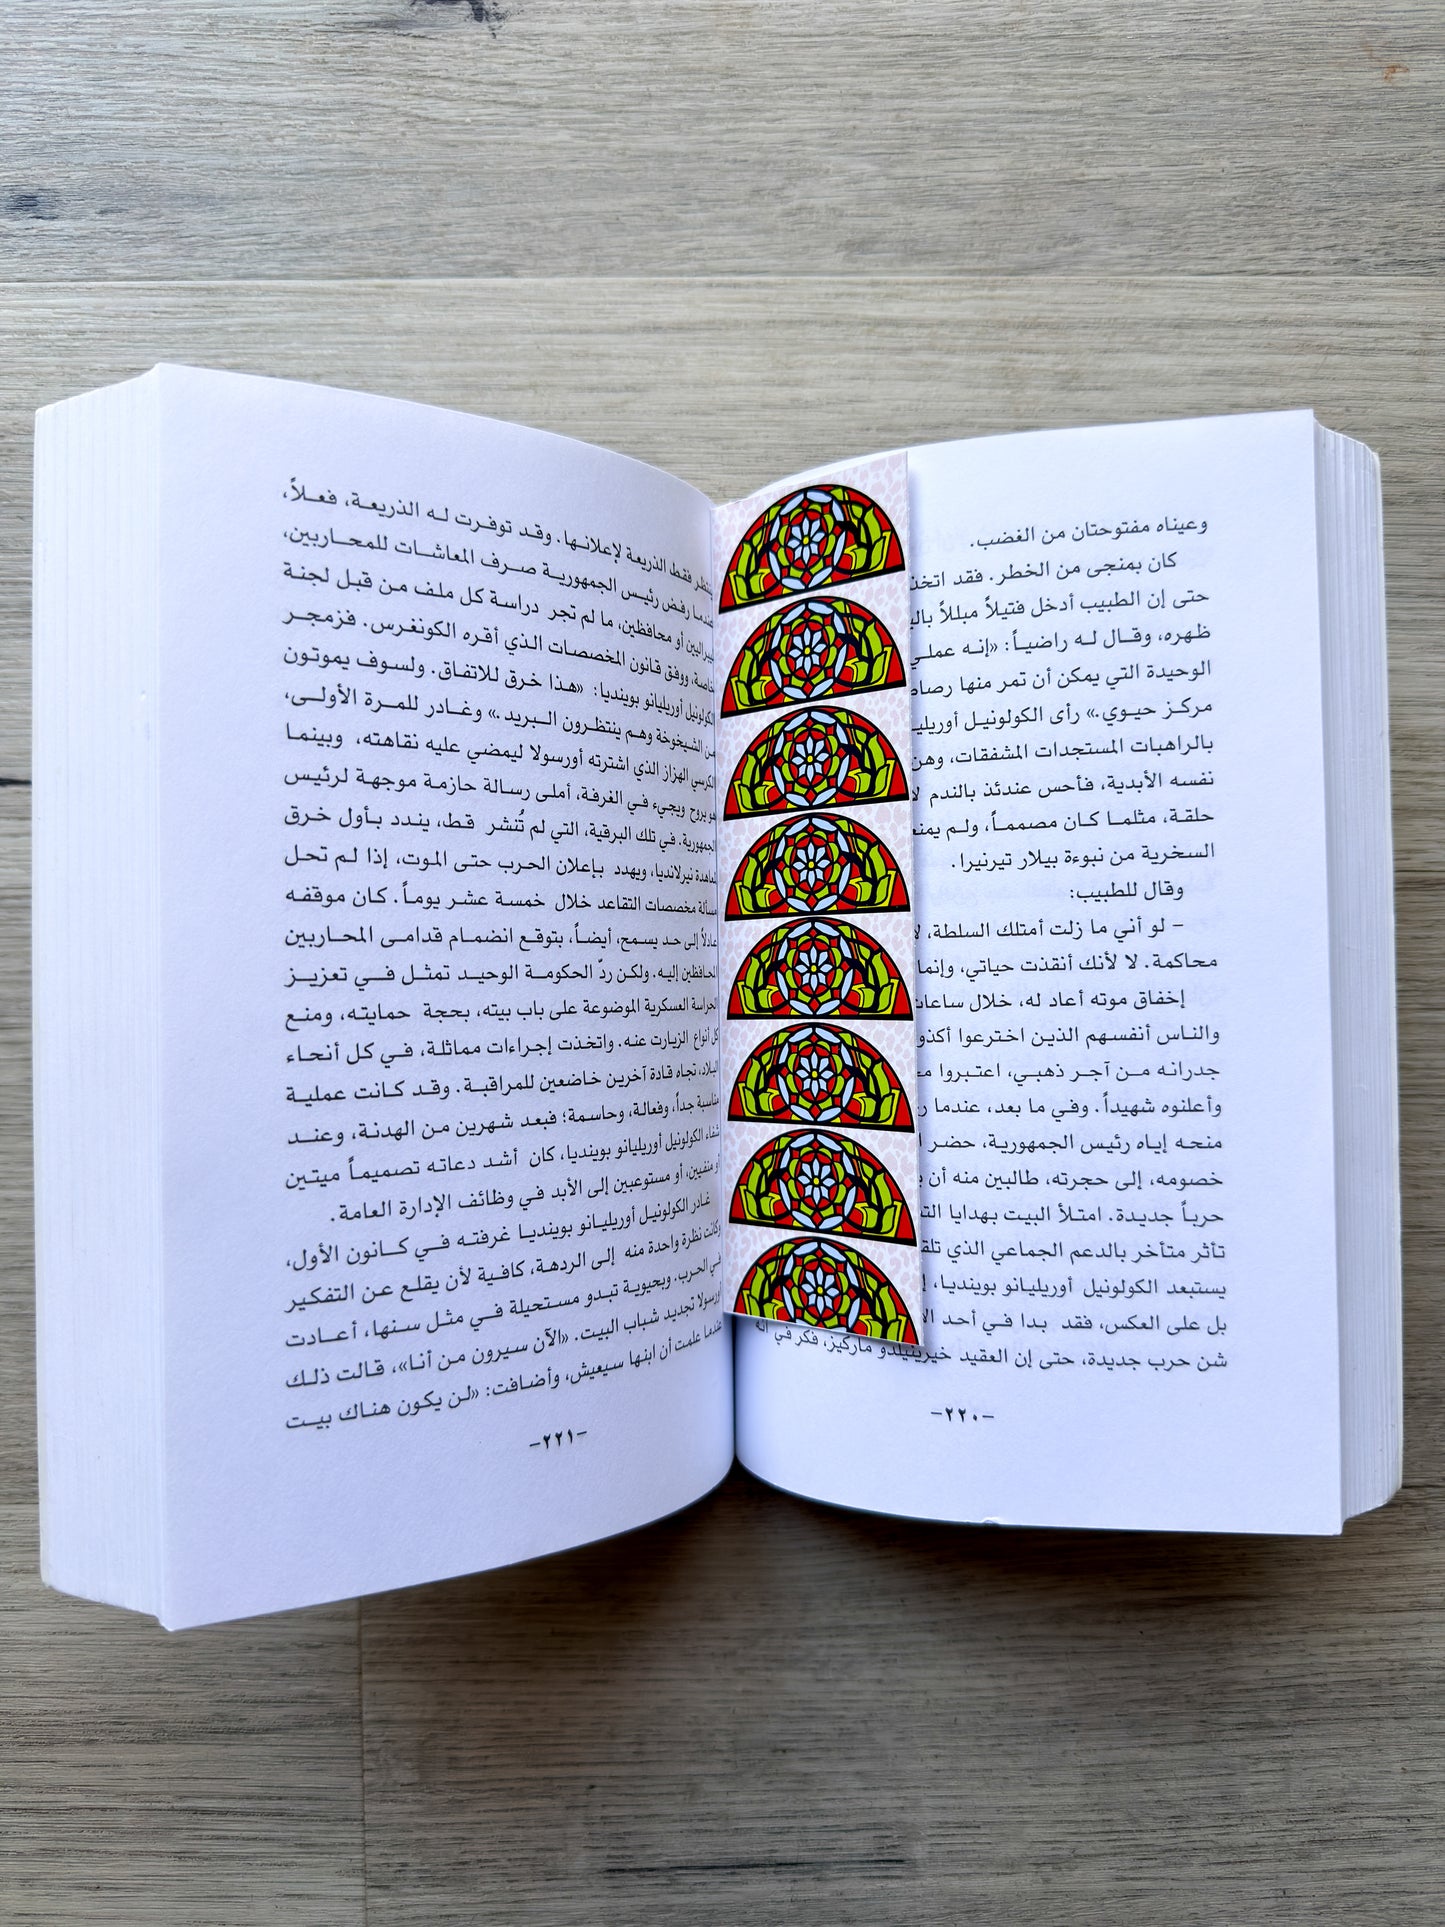 وعيناه مفتوحتان من الغضب.
كان بمنجى من الخطر. فقد اتخذ
حتى إن الطبيب أدخل فتيلاً مبللاً
ظهره، وقال له راضياً: «إنه عملي
الوحيدة التي يمكن أن تمر منها
مركز حيوي.» رأى الكولونيل
بالراهبات المستجدات المشفقات، وهن
نفسه الأبدية، فأحس عندئذ بالندم
حلقة، مثلما كان مصمماً، ولم
السخرية من نبوءة بيلار تيرنيرا.
وقال للطبيب:
- لو أني ما زلت أمتلك السلطة،
محاكمة. لا لأنك أنقذت حياتي، وإنما
إخفاق موته أعاد له، خلال
والناس أنفسهم الذين اخترعوا
جدرانه من آجر ذهبي، اعتبروا
وأعلنوه شهيداً. وفي ما بعد، عندما
منحه إياه رئيس الجمهورية، حضر
خصومه، إلى حجرته، طالبين منه أن
حرباً جديدة. امتلأ البيت بهدايا
تأثر متأخر بالدعم الجماعي الذي
يستبعد الكولونيل أوريليانو بوينديا،
بل على العكس، فقد بدا في أحد
شن حرب جديدة، حتى إن العقيد خيرينيلدو ماركيز، فكر في أنه
-٢٢٠-
ينتظر فقط الذريعة لإعلانها. وقد توفرت له الذريعة، فعلاً،
عندما رفض رئيس الجمهورية صرف المعاشات للمحاربين،
ليبراليين أو محافظين، ما لم تجر دراسة كل ملف من قبل لجنة
خاصة، ووفق قانون المخصصات الذي أقره الكونغرس. فزمجر
الكولونيل أوريليانو بوينديا: «هذا خرق للاتفاق. ولسوف يموتون
من الشيخوخة وهم ينتظرون البريد.» وغادر للمرة الأولى،
الكرسي الهزاز الذي اشترته أورسولا ليمضي عليه نقاهته، وبينما
هو يروح ويجيء في الغرفة، أملى رسالة حازمة موجهة لرئيس
الجمهورية. في تلك البرقية، التي لم تُنشر قط، يندد بأول خرق
لمعاهدة نيرلانديا، ويهدد بإعلان الحرب حتى الموت، إذا لم تحل
مسألة مخصصات التقاعد خلال خمسة عشر يوماً. كان موقفه
عادلاً إلى حد يسمح، أيضاً، بتوقع انضمام قدامى المحاربين
المحافظين إليه. ولكن ردّ الحكومة الوحيد تمثل في تعزيز
الحراسة العسكرية الموضوعة على باب بيته، بحجة حمايته، ومنع
كل أنواع الزيارت عنه. واتخذت إجراءات مماثلة، في كل أنحاء
البلاد، تجاه قادة آخرين خاضعين للمراقبة. وقد كانت عملية
مناسبة جداً، وفعالة، وحاسمة؛ فبعد شهرين من الهدنة، وعند
شفاء الكولونيل أوريليانو بوينديا، كان أشد دعاته تصميماً ميتين
أو منفيين، أو مستوعبين إلى الأبد في وظائف الإدارة العامة.
غادر الكولونيل أوريليانو بوينديا غرفته في كانون الأول،
وكانت نظرة واحدة منه إلى الردهة، كافية لأن يقلع عن التفكير
في الحرب. وبحيوية تبدو مستحيلة في مثل سنها، أعادت
أورسولا تجديد شباب البيت. «الآن سيرون من أنا»، قالت ذلك
عندما علمت أن ابنها سيعيش، وأضافت: «لن يكون هناك بيت
-٢٢١-